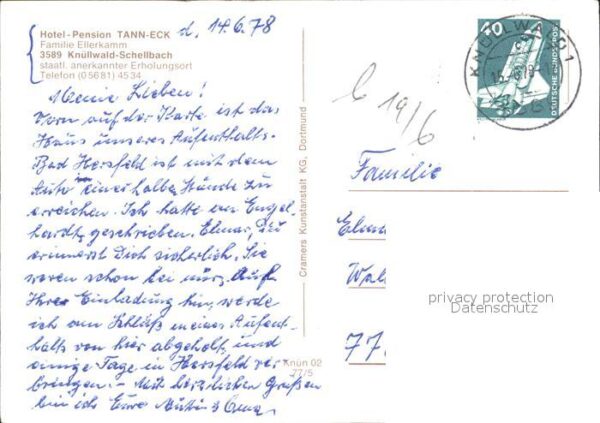 Hotel-Pension TANN-ECK d. 14.6.78
Familie Ellerkamm
3589 Knüllwald-Schellbach
staatl. anerkannter Erholungsort
Telefon (05681) 4534
Meine Lieben!
Vorn auf der Karte ist das
Haus unseres Aufenthalts.
Bad Hersfeld ist mit dem
Auto in einer halben Stunde zu
erreichen. Ich hatte an Engel-
hardts geschrieben. Elmar, Du
erinnerst Dich sicherlich. Sie
waren schon bei uns. Auf
Ihre Einladung hin, werde
ich am Schluß meines Aufent-
halts von hier abgeholt und
einige Tage in Hersfeld ver-
bringen. - Mit herzlichen Grüßen
bin ich Eure Mutti & Oma
Knün 02
77/5
Cramers Kunstanstalt KG, Dortmund
40
DEUTSCHE BUNDESPOST
KNÜLLWALD 1
19/6
Familie
77
privacy protection
Datenschutz